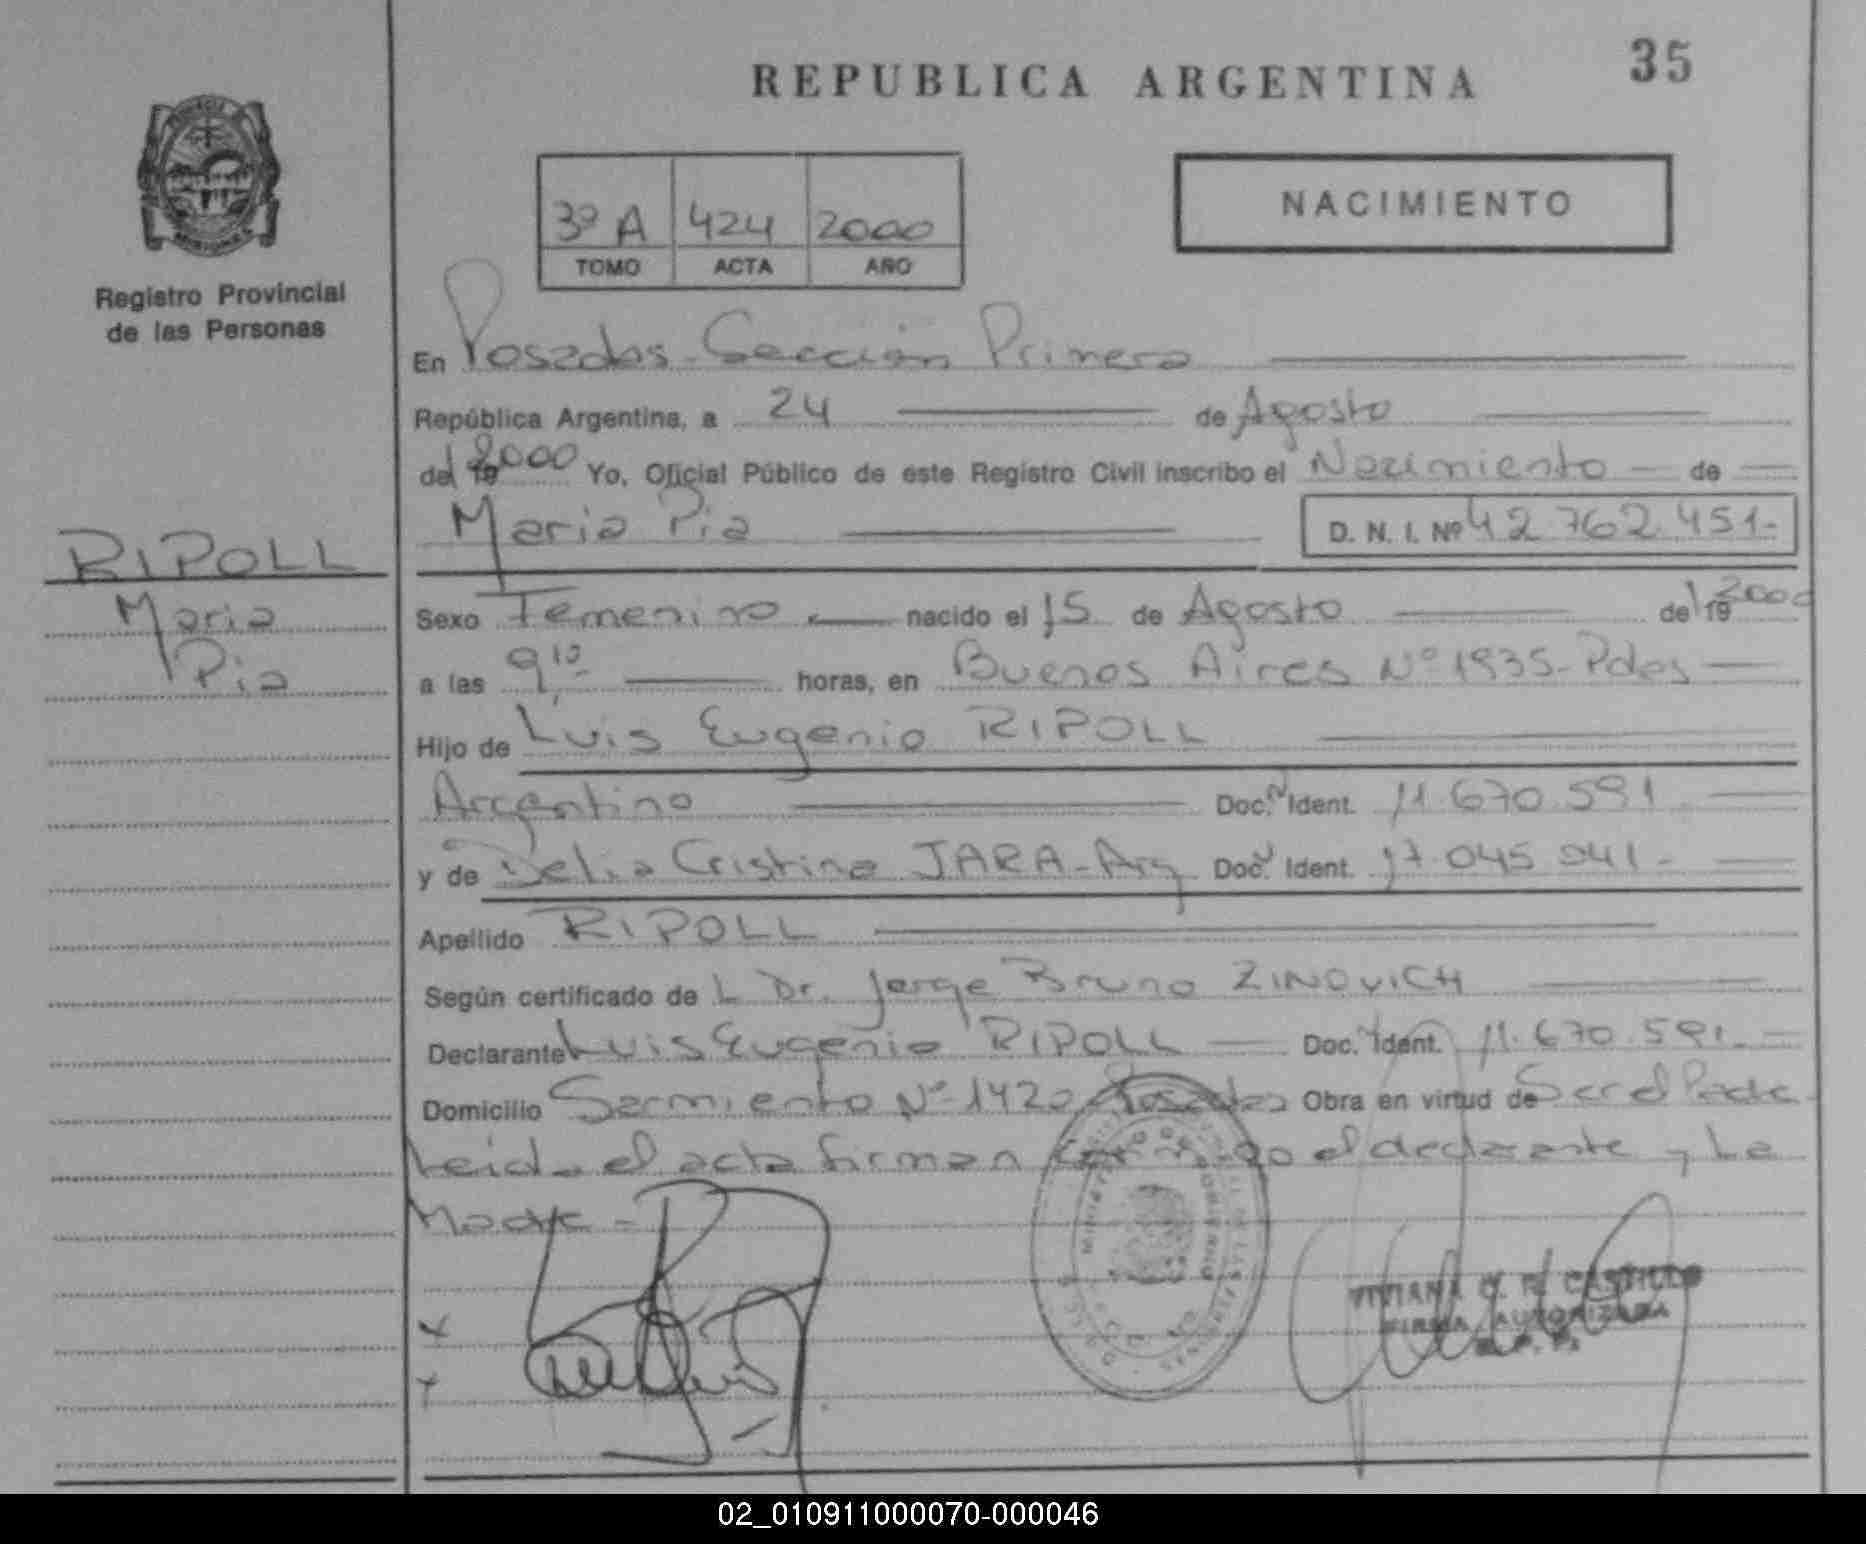 REPUBLICA ARGENTINA
35
3º A 424 2000
TOMO ACTA AÑO
NACIMIENTO
Registro Provincial
de las Personas
En Posadas - Sección Primera
República Argentina, a 24 de Agosto
del 19 2000 Yo, Oficial Público de este Registro Civil inscribo el Nacimiento de
Maria Pia D. N. I. Nº 42.762.451-
RIPOLL
Maria
Pia
Sexo Femenino nacido el 15 de Agosto del 19 2000
a las 9,10- horas, en Buenos Aires Nº 1935-Pdas
Hijo de Luis Eugenio RIPOLL
Argentino Doc. Ident. 11.670.591
y de Delia Cristina JARA-Arg Doc. Ident. 17.045.041-
Apellido RIPOLL
Según certificado de L Dr. Jorge Bruno ZINOVICH
Declarante Luis Eugenio RIPOLL Doc. Ident. 11.670.591-
Domicilio Sarmiento Nº 1420 Posadas Obra en virtud de Ser el Padre
Leida el acta firman conmigo el declarante y La
Madre -
VIVIANA C. R. CASTILLO
FIRMA AUTORIZADA
R. P. P.
02_010911000070-000046